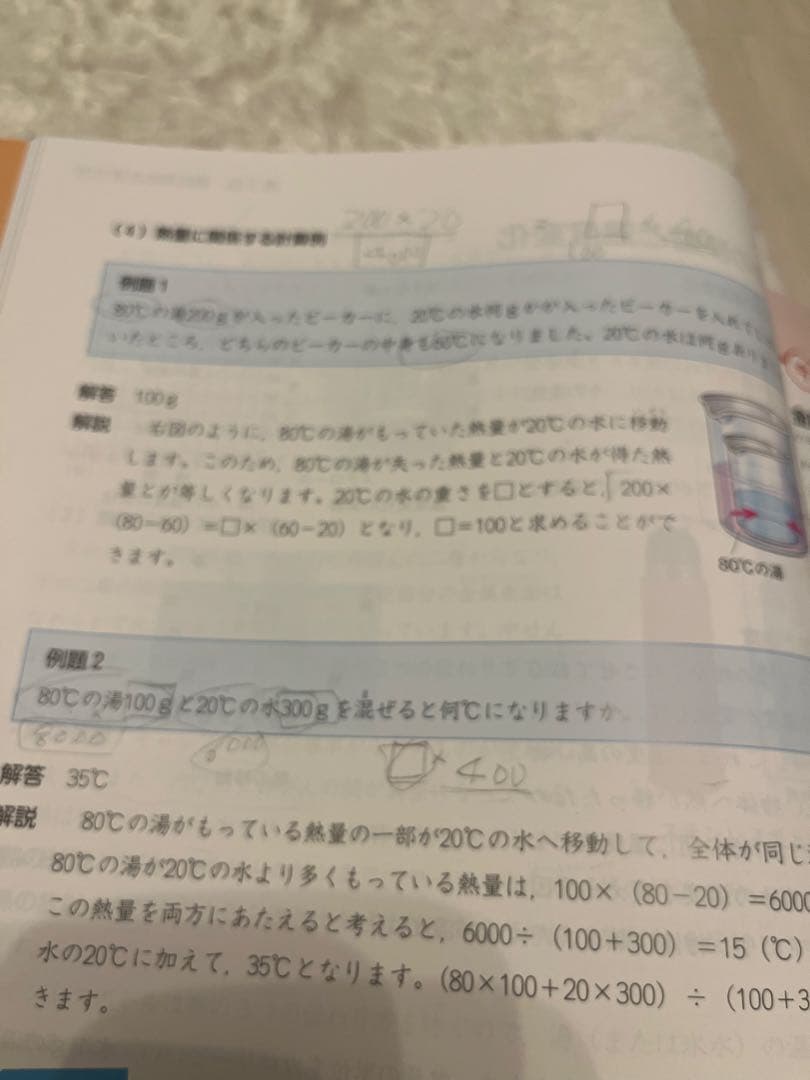 (4) 熱量に関係する計算例
200×20
例題1
80℃の湯200gが入ったビーカーに，20℃の水何gかが入ったビーカーを入れて
いたところ，どちらのビーカーの中身も60℃になりました。20℃の水は何gあり
解答 100g
解説 右図のように，80℃の湯がもっていた熱量が20℃の水に移動
します。このため，80℃の湯が失った熱量と20℃の水が得た熱
量とが等しくなります。20℃の水の重さを□とすると，200×
(80−60)＝□×(60−20)となり，□＝100と求めることがで
きます。
80℃の湯
例題2
80℃の湯100gと20℃の水300gを混ぜると何℃になりますか。
8000
6000
□×400
解答 35℃
解説 80℃の湯がもっている熱量の一部が20℃の水へ移動して，全体が同じ
80℃の湯が20℃の水より多くもっている熱量は，100×(80−20)＝6000
この熱量を両方にあたえると考えると，6000÷(100＋300)＝15(℃)
水の20℃に加えて，35℃となります。(80×100＋20×300)÷(100＋3
きます。